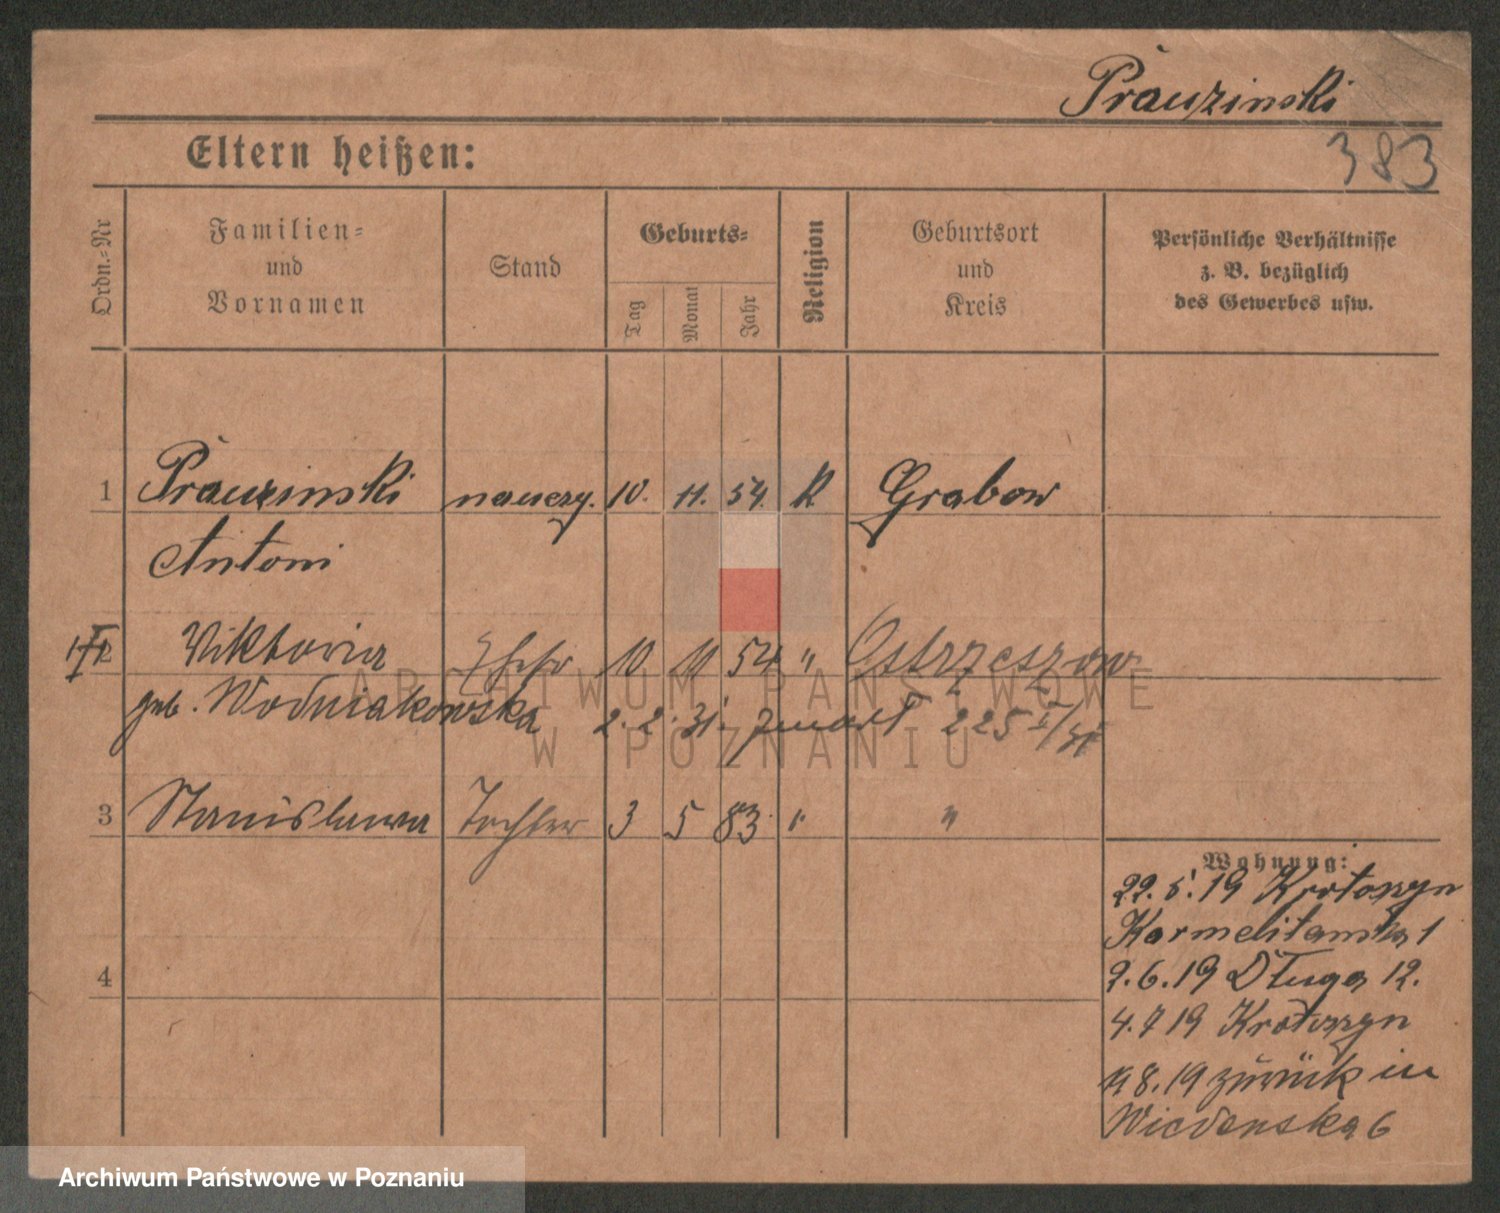 Prauzinski
383
Eltern heißen:
Ordn.-Nr
Familien-
und
Vornamen
Stand
Geburts-
Tag
Monat
Jahr
Religion
Geburtsort
und
Kreis
Persönliche Verhältnisse
z. B. bezüglich
des Gewerbes usw.
1 Prauzinski nauczy. 10. 11. 54. K Grabow
Antoni
Viktoria 10 11 54 " Ostrzeszow
geb. Wodniakowska 2. 2. 31. zmarł 225
3 Stanislawa Tochter 3 5 83. " "
4
Wohnung:
22. 5. 19 Krotoszyn
Karmelitanska 1
2. 6. 19 Długa 12.
4. 7 19 Krotoszyn
8. 19 zurück in
Wiedenska 6
ARCHIWUM PAŃSTWOWE
W POZNANIU
Archiwum Państwowe w Poznaniu